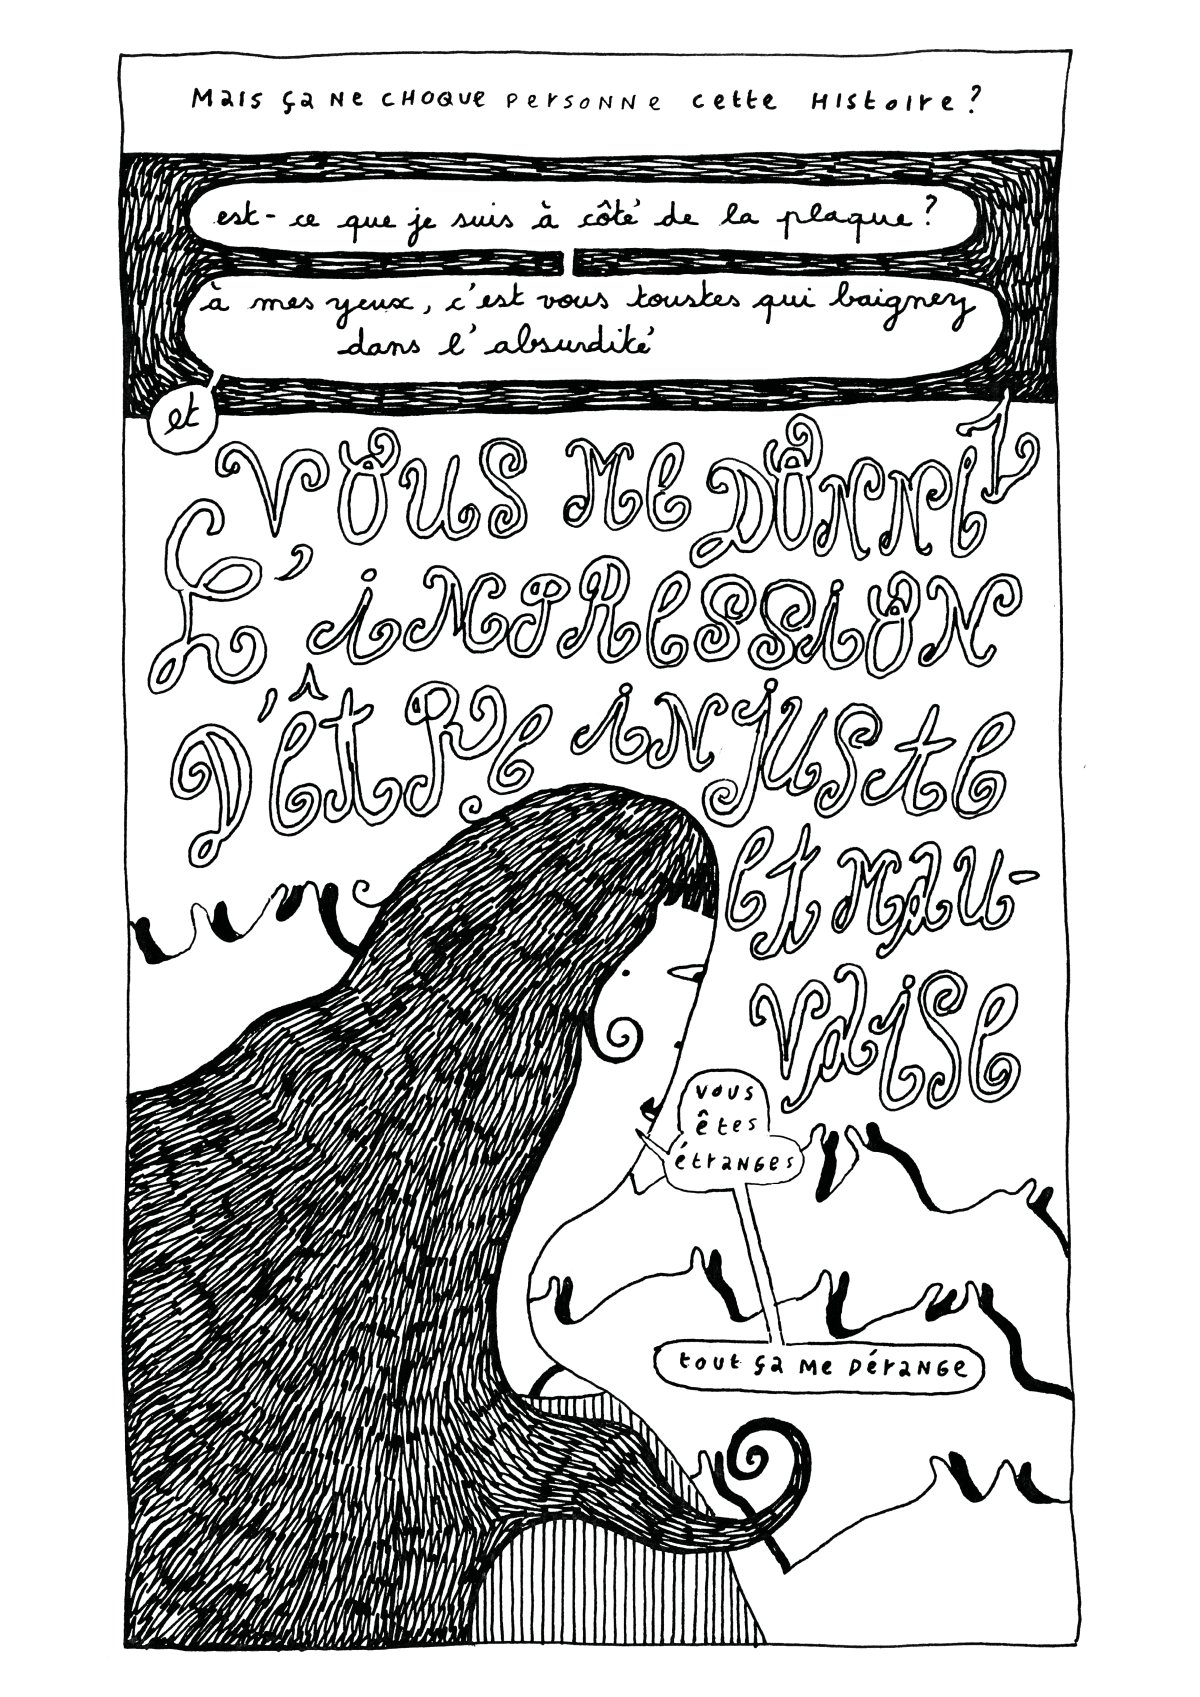 Mais ça ne choque personne cette histoire?
est-ce que je suis à côté de la plaque?
à mes yeux, c'est vous toustes qui baignez
dans l'absurdité
et
vous me donniez
l'impression
d'être injuste
et mau-
vaise
vous
êtes
étranges
tout ça me dérange